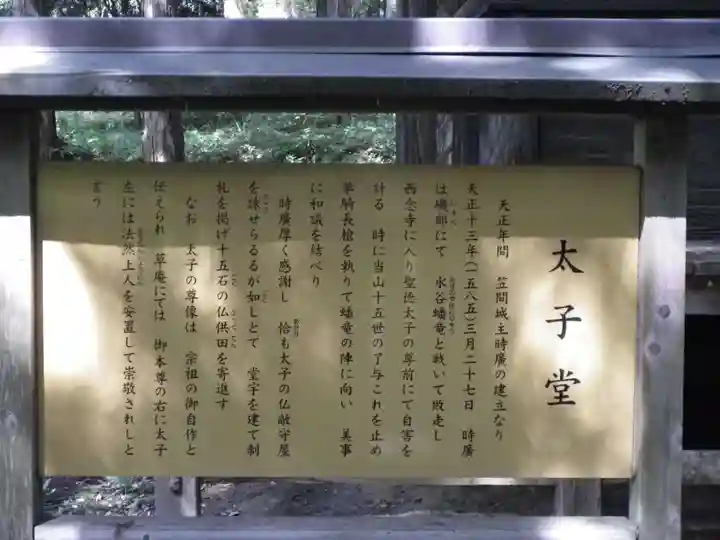 太子堂
天正年間　笠間城主時廣の建立なり
天正十三年(一五八五)三月二十七日　時廣
は磯部にて　水谷蟠竜と戦いて敗走し
西念寺に入り聖徳太子の尊前にて自害を
計る　時に当山十五世の了与これを止め
単騎長槍を執りて蟠竜の陣に向い　美事
に和議を結べり
時廣厚く感謝し　恰も太子の仏敵守屋
を誅せらるるが如しとて　堂宇を建て制
札を掲げ十五石の仏供田を寄進す
なお　太子の尊像は　宗祖の御自作と
伝えられ　草庵にては　御本尊の右に太子
左には法然上人を安置して崇敬されしと
言う